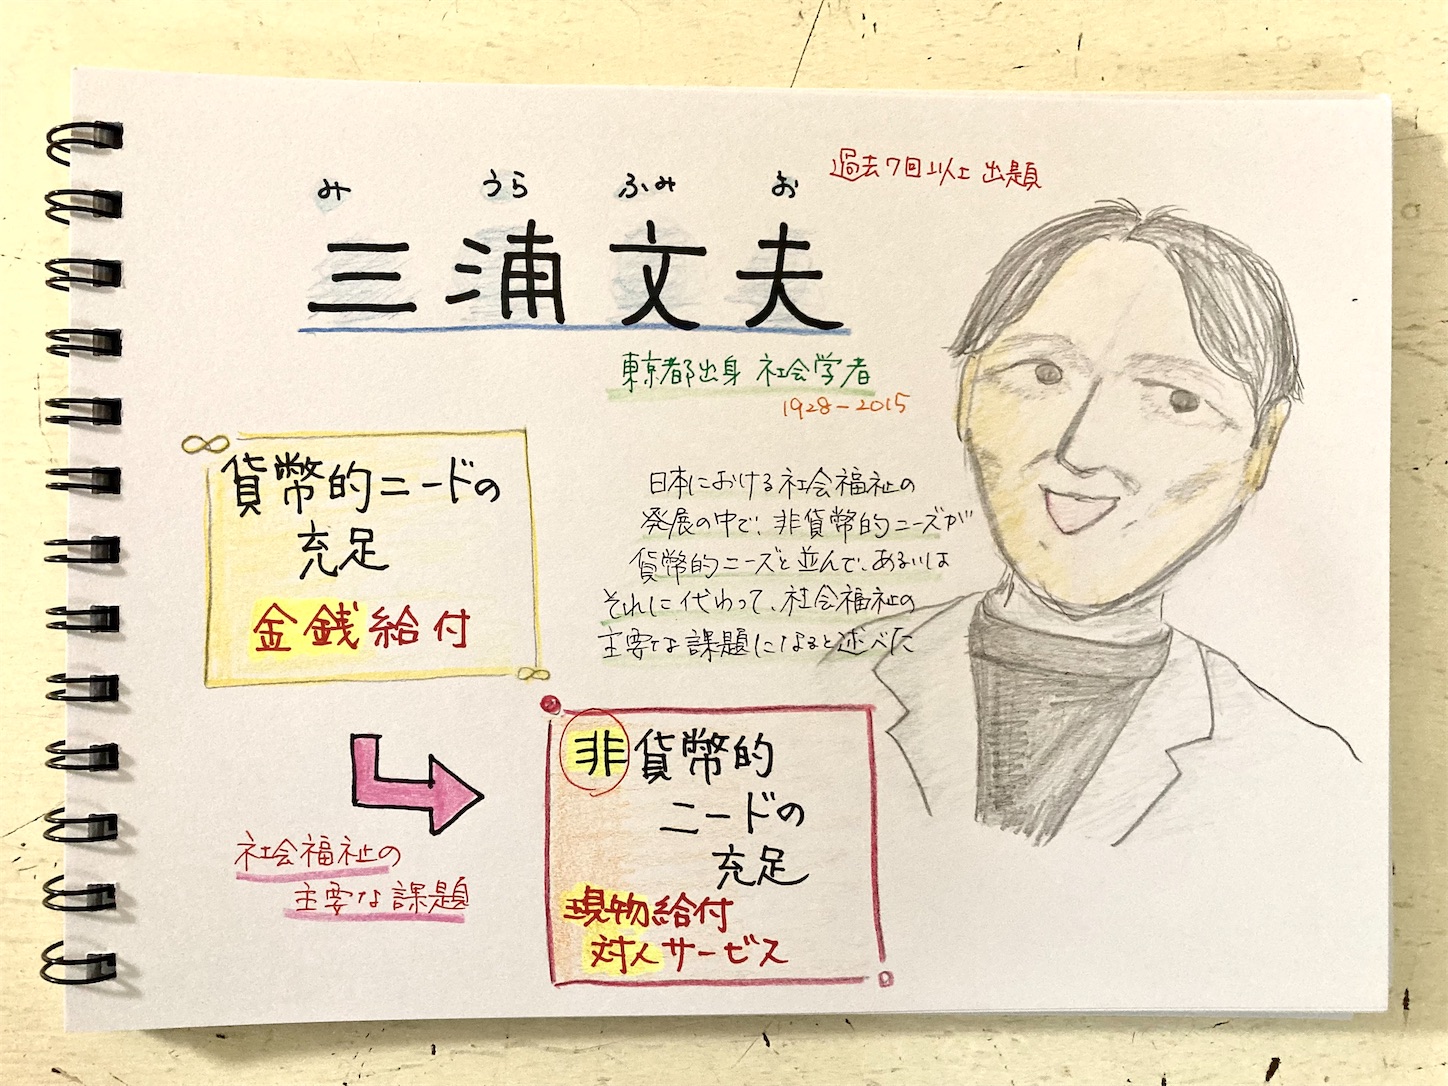 過去7回以上出題
み うら ふみ お
三浦文夫
東京都出身 社会学者
1928-2015
貨幣的ニードの
充足
金銭給付
日本における社会福祉の
発展の中で、非貨幣的ニーズが
貨幣的ニーズと並んで、あるいは
それに代わって、社会福祉の
主要な課題になると述べた
社会福祉の
主要な課題
非貨幣的
ニードの
充足
現物給付
対人サービス